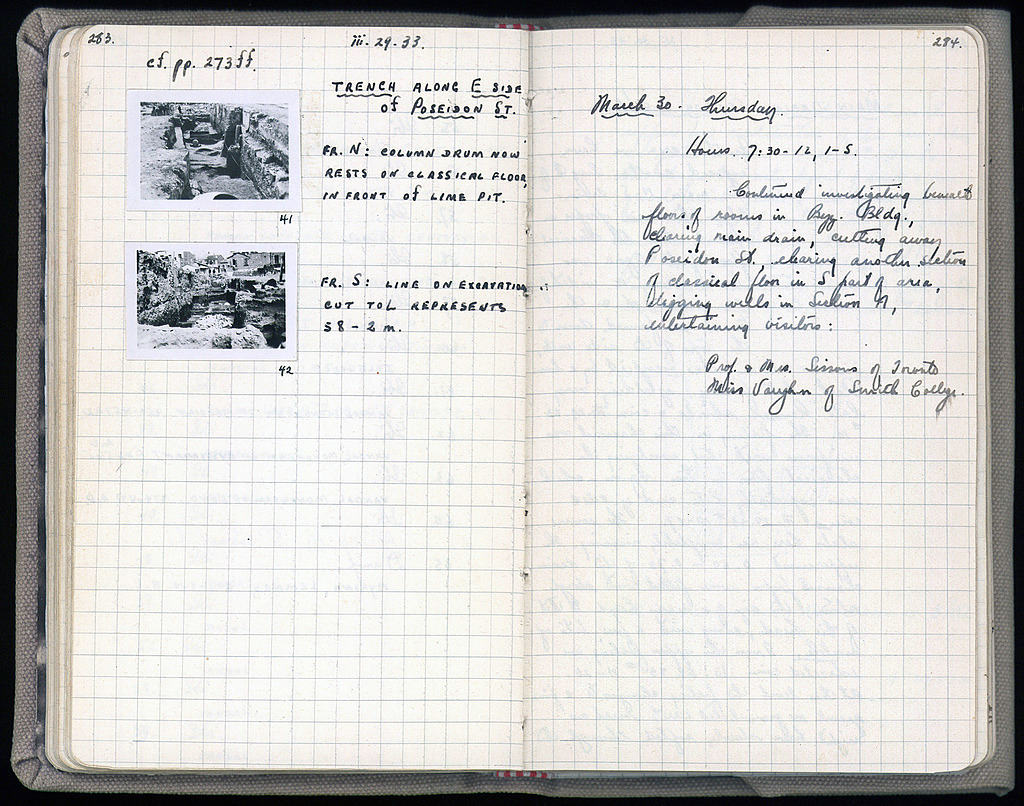 283.
iii-29-33.
cf. pp. 273ff.
TRENCH ALONG E SIDE
of POSEIDON ST.
FR. N: COLUMN DRUM NOW
RESTS ON CLASSICAL FLOOR,
IN FRONT OF LIME PIT.
41
FR. S: LINE ON EXCAVATION
CUT TO L REPRESENTS
58 - 2 m.
42
284.
March 30. Thursday.
Hours. 7:30-12, 1-5.
Continued investigating beneath
floors of rooms in Byz. Bldg.,
clearing main drain, cutting away
Poseidon St. clearing another section
of classical floor in S part of area,
digging wells in Section
entertaining visitors:
Prof. & Mrs. Sissons of Toronto
Miss Vaughn of Smith College.